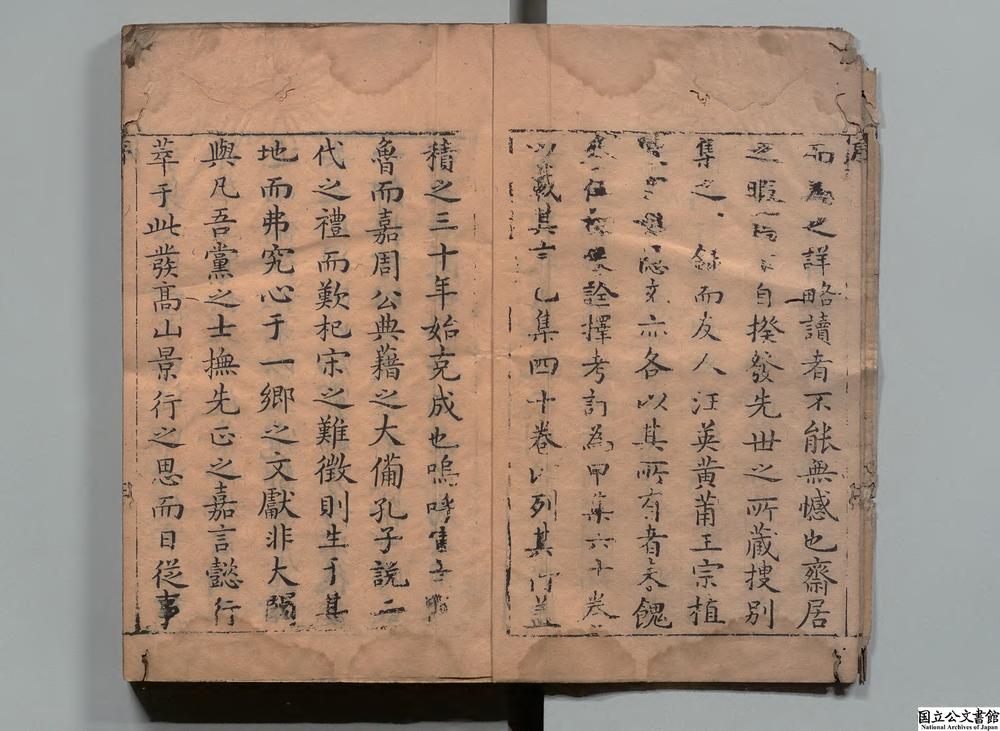 而為之詳略讀者不能無憾也齋居
之暇自揆發先世之所藏搜別
集之錄而友人汪英黃莆王宗植
亦各以其所有者來餽
詮擇考訂為甲集六十卷
以載其言乙集四十卷以列其行蓋
積之三十年始克成也嗚呼
魯而嘉周公典藉之大備孔子說二
代之禮而歎杞宋之難徵則生于其
地而弗究心于一鄉之文獻非大闕
與凡吾黨之士撫先正之嘉言懿行
萃于此發高山景行之思而日從事
国立公文書館
National Archives of Japan